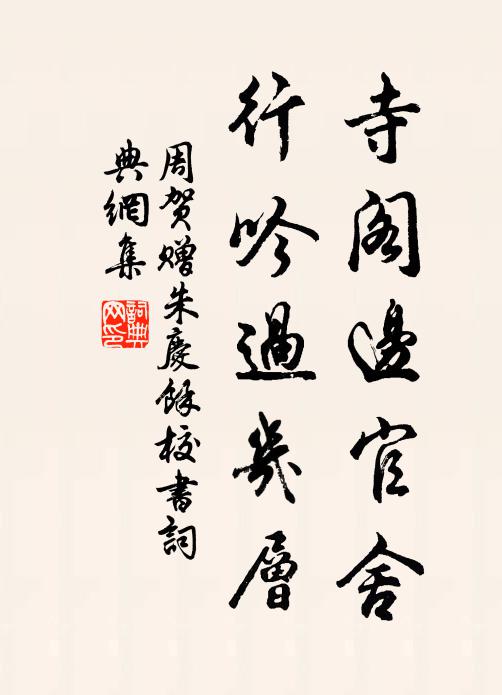 寺阁邊官舍
行吟過幾層
周贺赠朱慶餘校書詞
典網集
詞典
网印